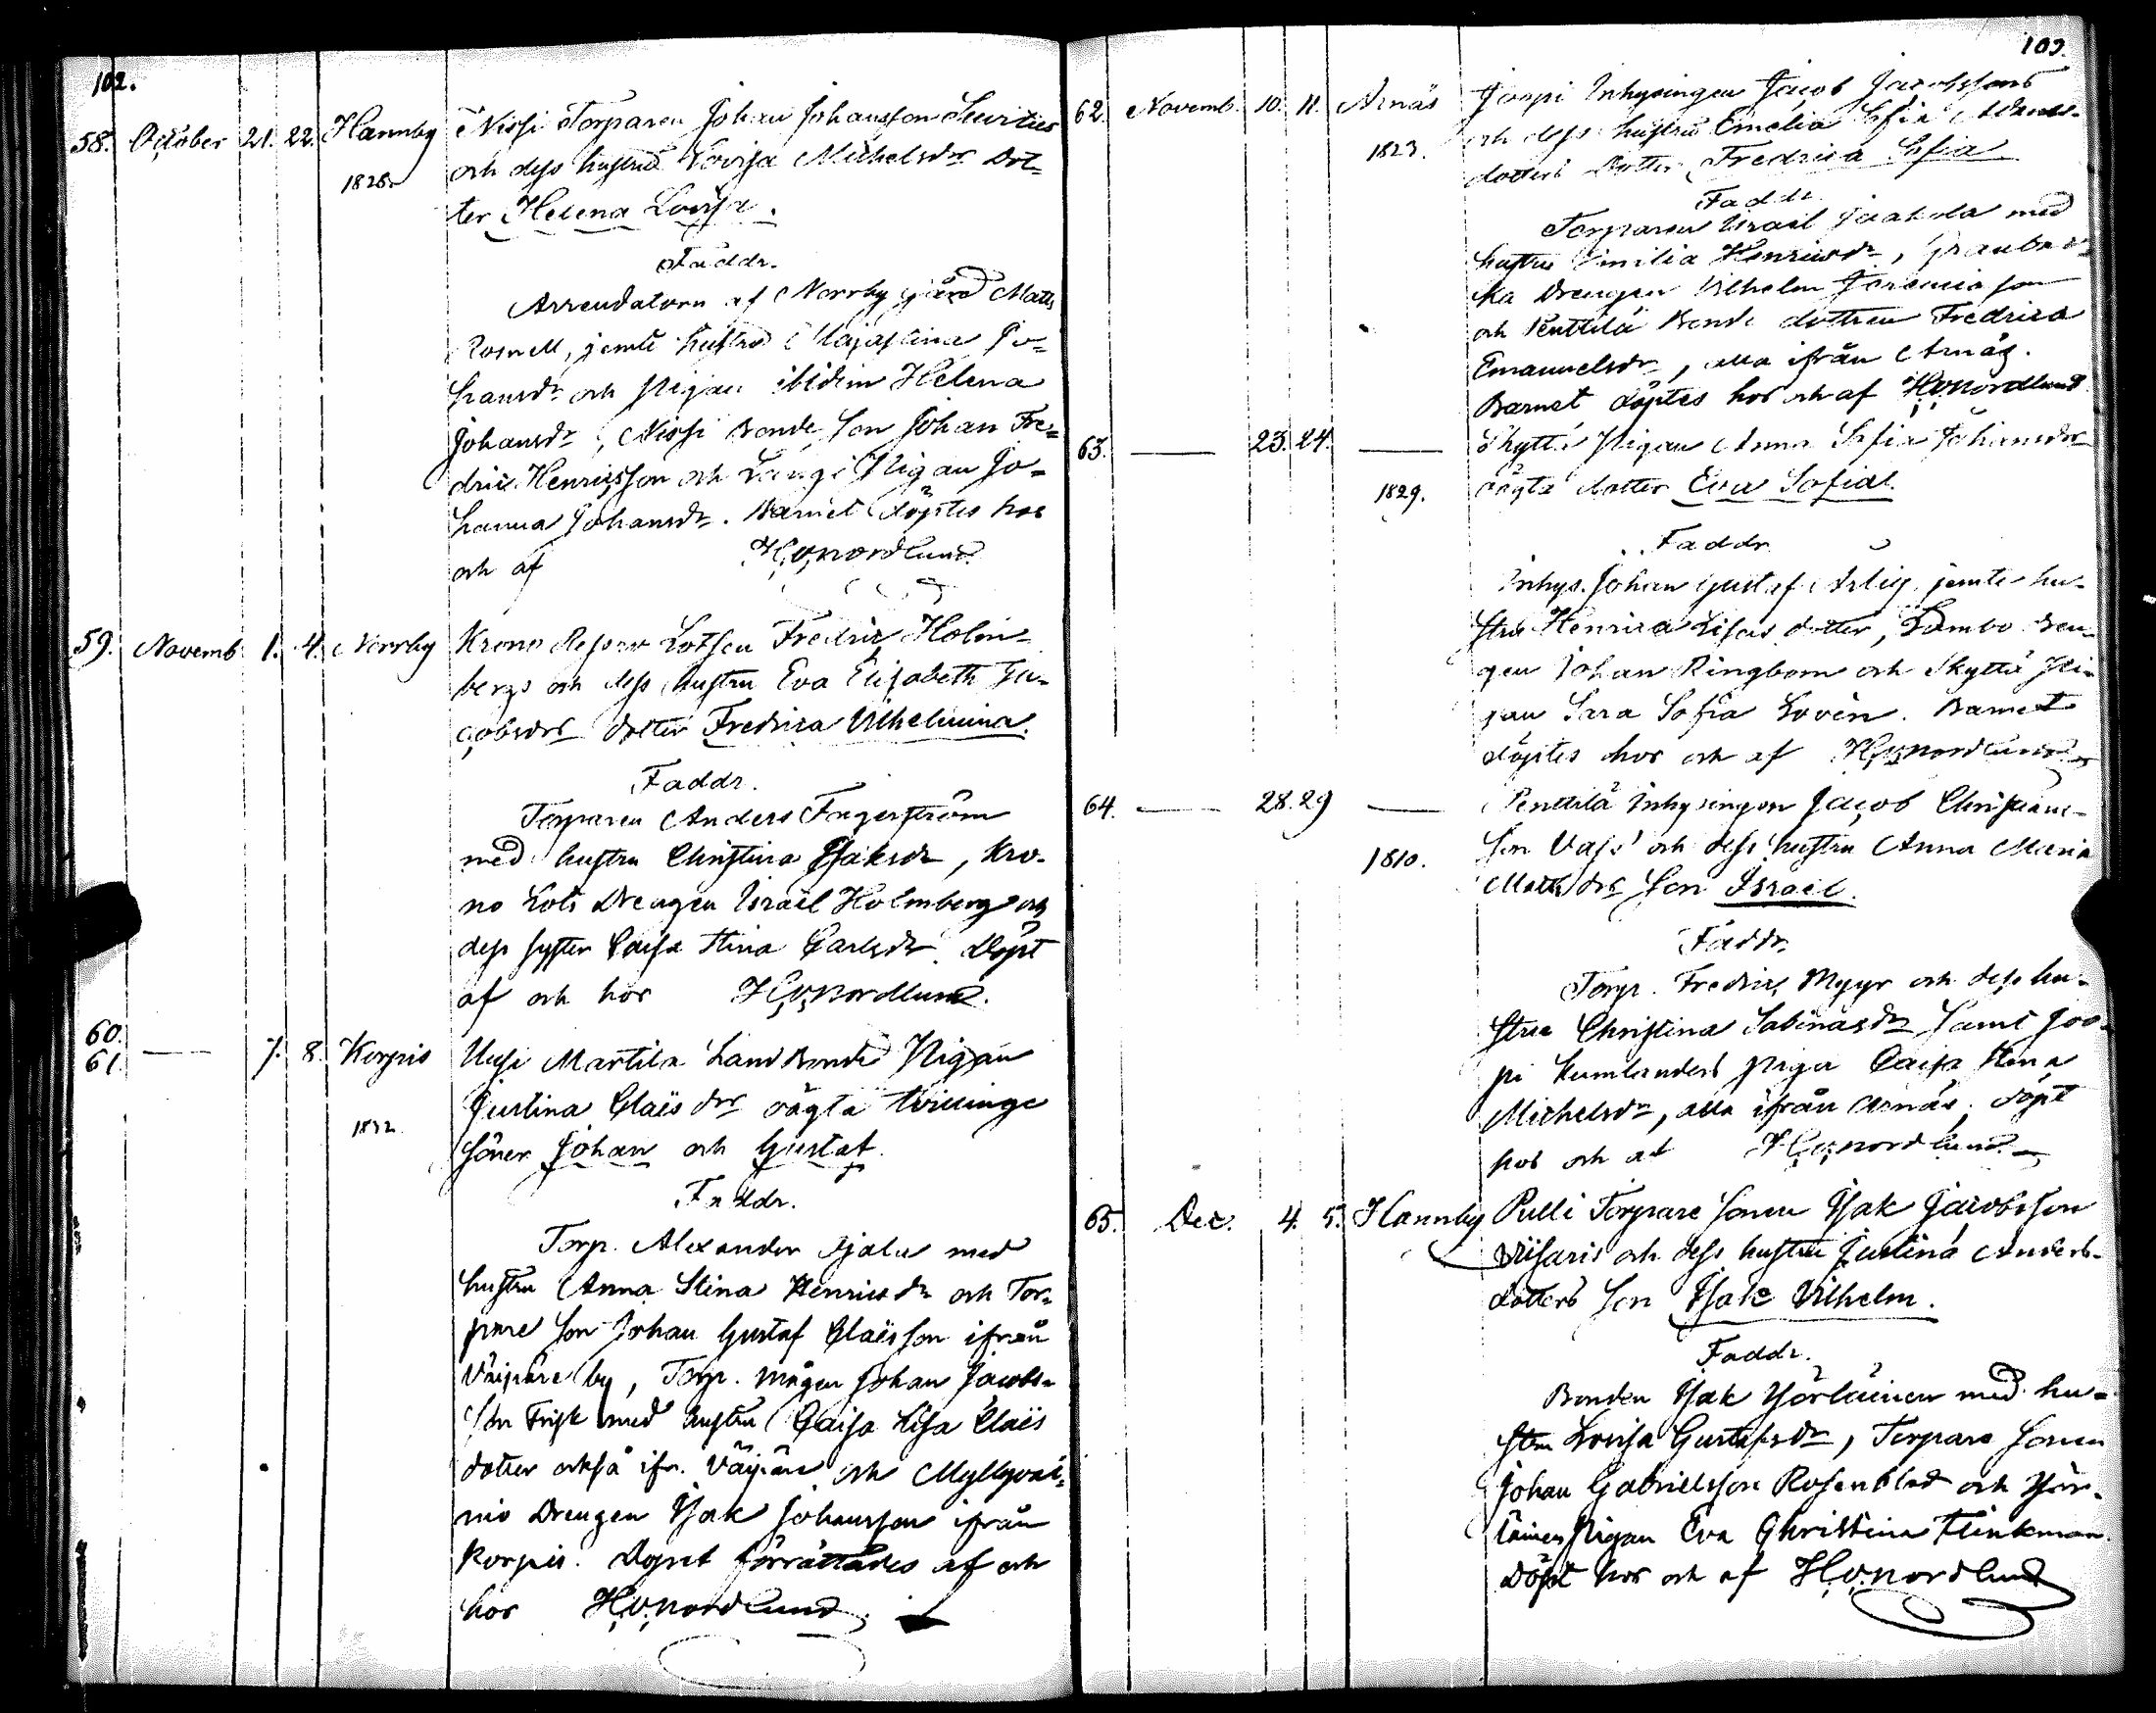 102.
58. October 21. 22. Hannby Nissi Torparen Johan Johansson
1828. och dess hustru Lovisa Michelsdr Dot=
ter Helena Lovisa.
Faddr.
Arrendatorn af Norrby gård Matts
Rosnell, jemte hustru Majastina Jo=
hansdr och Pigan ibidem Helena
Johansdr, Nissi Bonde Son Johan Fre=
dric Henricsson och Pigan Jo=
hanna Johansdr. Barnet döptes hos
och af H. v. Nordlund
59. Novemb. 1. 4. Norrby Krono Reserv Lotsen Fredric Holm=
bergs och dess hustru Eva Elisabeth Ja=
cobsdrs dotter Fredrica Vilhelmina.
Faddr.
Torparen Anders Fagerström
med hustru Christina Isaksdr, Kro=
no Lots Drengen Israel Holmberg och
dess syster Caisa Stina Carlsdr. Döpt
af och hos H. v. Nordlund.
60.
61. — 7. 8. Korpis Uusi Martila Landbonde Pigan
Justina Claësdrs oägta tvillinge
1832.
söner Johan och Gustaf.
Faddr.
Torp. Alexander med
hustru Anna Stina Henricsdr och Tor=
pare Son Johan Gustaf Claësson ifrån
Väipäre by, Torp. mågen Johan Jacobs=
son Frisk med hustru Caisa Lisa Claës
dotter också ifr. Väipäre och Myllyvai=
nio Drengen Isak Johansson ifrån
Korpis. Dopet förrättades af och
hos H. v. Nordlund.
103.
62. Novemb. 10. 11. Arnäs Joopi Inhysingen Jacob Jacobssons
1823. och dess hustru Emelia Sofia
dotters Dotter Fredrica Sofia
Faddr.
Torparen Israel Jaakola med
hustru Emilia Henricsdr,
ka Drengen Vilhelm Jeremiasson
och Penttilä Bonde dottren Fredrica
Emanuelsdr, alla ifrån Arnäs.
Barnet döptes hos och af H. v. Nordlund
63. — 23. 24. — Skyttä Pigan Anna Sofia Johansdrs
1829. oägta dotter Eva Sofia.
Faddr.
Inhys. Johan Gustaf Arlig jemte hu=
stru Henrica Lisas dotter, dren=
gen Johan Ringbom och Skyttä Pi=
gan Sara Sofia Lovén. Barnet
döptes hos och af H. v. Nordlund
64. — 28. 29 — Penttilä Inhysingen Jacob Christians=
1810. son och dess hustru Anna Maria
Mattsdrs Son Israel.
Faddr.
Torp. Fredric Myyr och dess hu=
stru Christina Sabinasdr samt Joo=
pi Kumlanders Piga Caisa Stina
Michelsdr, alla ifrån Arnäs. döpt
hos och af H. v. Nordlund
65. Dec. 4. 5. Hannby Pulli Torpare Sonen Isak Jacobsson
och dess hustru Justina Anders=
dotters Son Isak Vilhelm.
Faddr.
Bonden Isak Yörläinen med hu=
stru Lovisa Gustafsdr, Torpare Sonen
Johan Gabrielsson Rosenblad och Yör=
läinen Pigan Eva Christina Flinkman.
Döpt hos och af H. v. Nordlund